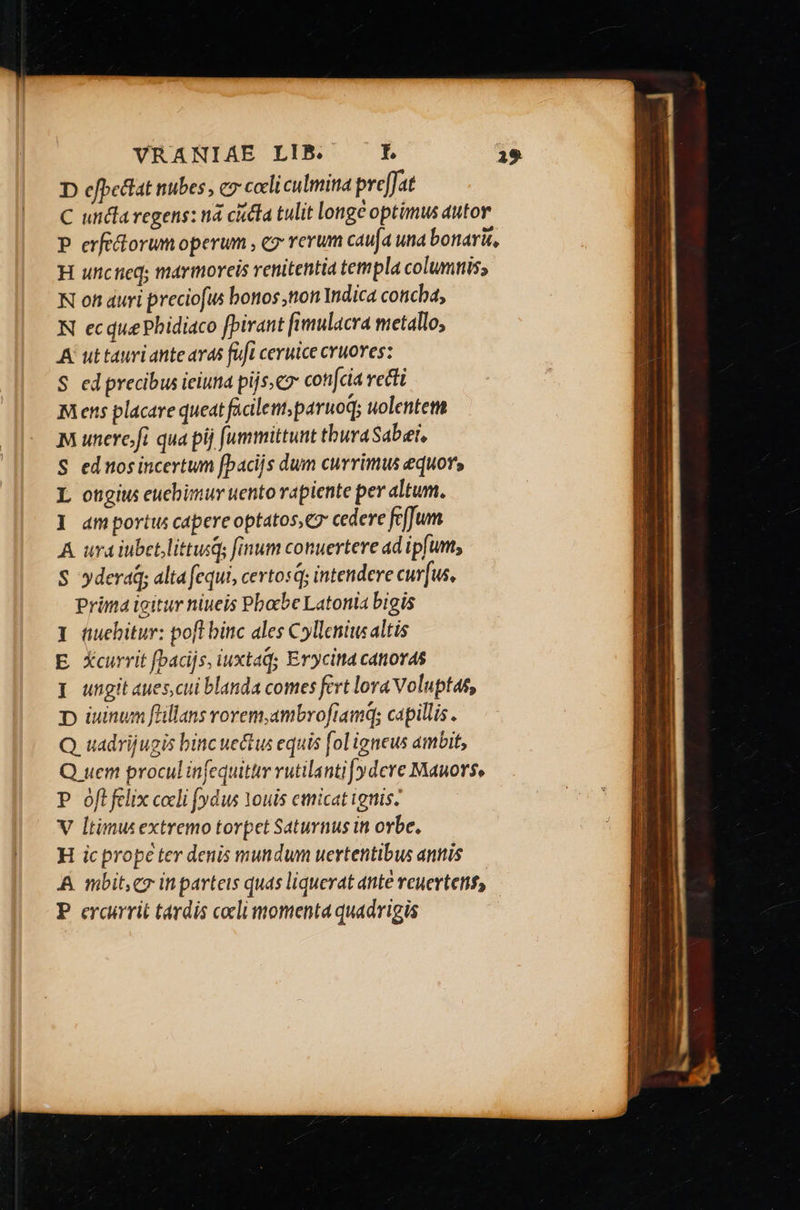 VRANIAE LIB. I. 29
D eſpectat nubes, & cœli culmina preſſat
C uncta regens: nā cūcta tulit longè optimus autor
P erfectorum operum, & rerum cauſa una bonarū,
H uncneq; marmoreis renitentia templa columnis,
N on auri precioſus honos, non Indica concha,
N ec quæ Phidiaco ſpirant ſimulacra metallo,
A ut tauri ante aras fuſi ceruice cruores:
S ed precibus ieiuna pijs, & conſcia recti
M ens placare queat facilem, paruoq; uolentem
M unere, ſi qua pij ſummittunt thura Sabæi.
S ed nos incertum ſpacijs dum currimus æquor,
L ongius euehimur uento rapiente per altum.
I am portus capere optatos, & cedere feſſum
A ura iubet, littusq; ſinum conuertere ad ipſum,
S yderaq; alta ſequi, certosq; intendere curſus.
Prima igitur niueis Phœbe Latonia bigis
I nuehitur: poſt hinc ales Cyllenius altis
E xcurrit ſpacijs, iuxtaq; Erycina canoras
I ungit aues, cui blanda comes fert lora Voluptas,
D iuinum ſtillans rorem, ambroſiamq; capillis.
Q uadrijugis hinc uectus equis ſol igneus ambit,
Q uem procul inſequitur rutilanti ſydere Mauors.
P òſt felix cœli ſydus Iouis emicat ignis.
V ltimus extremo torpet Saturnus in orbe.
H ic propè ter denis mundum uertentibus annis
A mbit, & in parteis quas liquerat antè reuertens,
P ercurrit tardis cœli momenta quadrigis